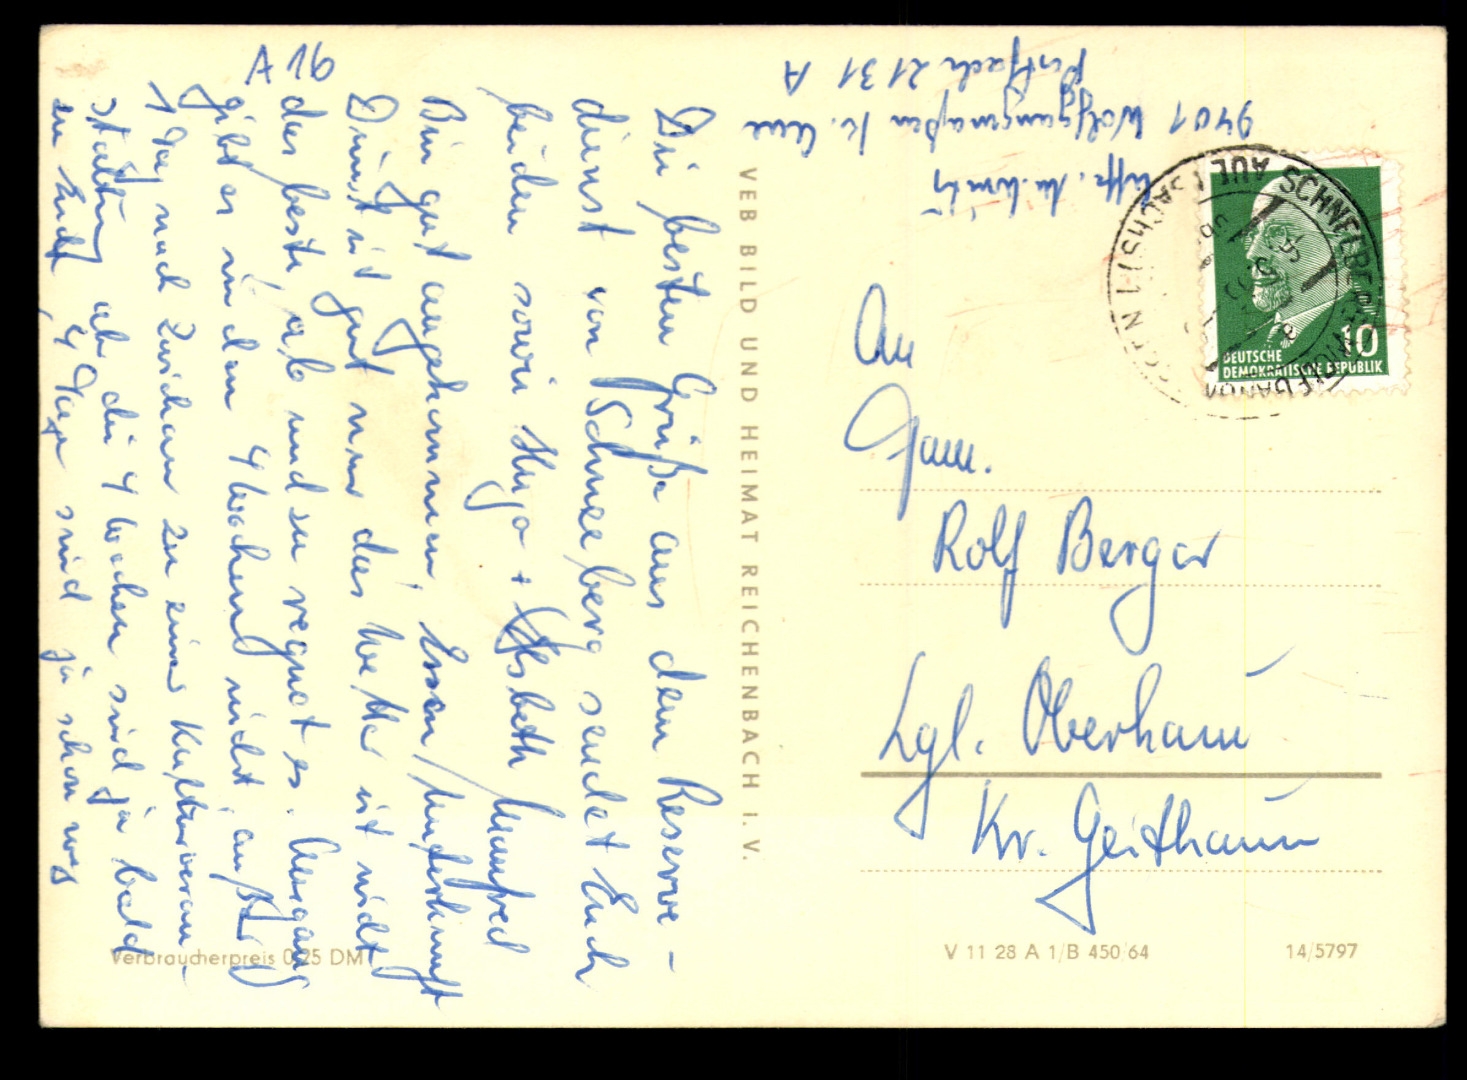 A 16
Die besten Grüße aus dem Reserve-
dienst von Schneeberg sendet Euch
beiden sowie Hugo + Elsbeth Manfred
Bin gut angekommen, Essen, Unterkunft
Dienst ist gut nur das Wetter ist nicht
das beste, ab und zu regnet es. Ausgang
gibt es in den 4 Wochen nicht, außer
1 Tag nach Zwickau zu einer Kulturveran-
staltung aber die 4 Wochen sind ja bald
zu Ende, 4 Tage sind ja schon weg
9401 Wolfgangmaßen Kr. Aue
Postfach 2131 A
VEB BILD UND HEIMAT REICHENBACH I. V.
AUE (SACHS)
SCHNEEBERG
DEUTSCHE
DEMOKRATISCHE REPUBLIK
10
An
Fam.
Rolf Berger
Lgl. Oberhain
Kr. Geithain
Verbraucherpreis 0,25 DM
V 11 28 A 1/B 450/64
14/5797